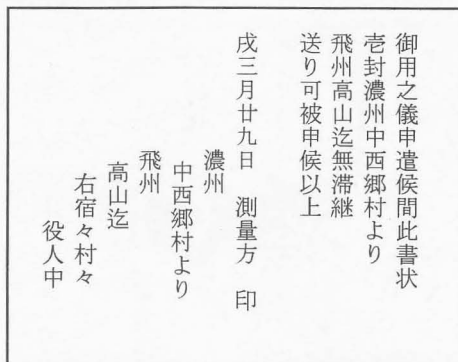 御用之儀申遣候間此書状
壱封濃州中西郷村より
飛州高山迄無滞継
送り可被申候以上
戌三月廿九日　測量方　印
濃州
中西郷村より
飛州
高山迄
右宿々村々
役人中